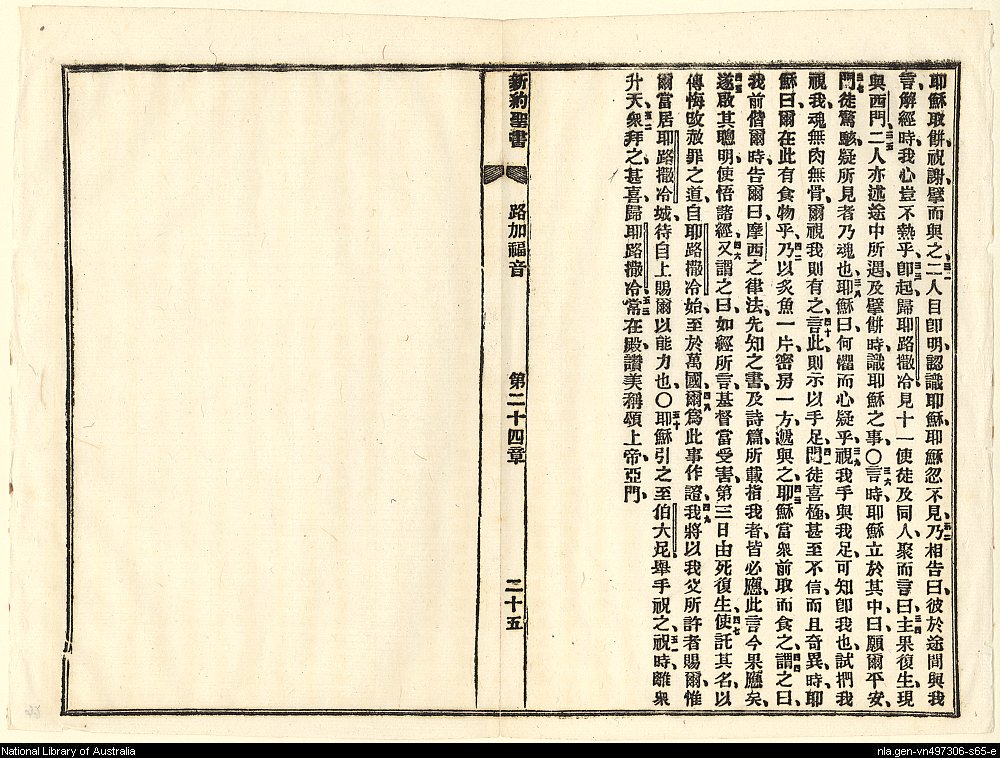 耶穌取餅、祝謝擘而與之、三一二人目卽明、認識耶穌、耶穌忽不見、三二乃相告曰、彼於途間與我
言、解經時、我心豈不熱乎、三三卽起、歸耶路撒冷、見十一使徒及同人聚而言曰、三四主果復生、現
與西門、三五二人亦述途中所遇、及擘餅時識耶穌之事、〇三六言時、耶穌立於其中曰、願爾平安、
三七門徒驚駭、疑所見者乃魂也、三八耶穌曰、何懼而心疑乎、三九視我手與我足、可知卽我也、試捫我
視我、魂無肉無骨、爾視我則有之、四十言此則示以手足、四一門徒喜極、甚至不信、而且奇異、時耶
穌曰、爾在此有食物乎、四二乃以炙魚一片、密房一方、遞與之、四三耶穌當衆前取而食之、四四謂之曰、
我前偕爾時、吿爾曰、摩西之律法、先知之書、及詩篇、所載指我者、皆必應、此言今果應矣、
四五遂啟其聰明、使悟諸經、四六又謂之曰、如經所言、基督當受害、第三日由死復生、四七使託其名、以
傳悔改赦罪之道、自耶路撒冷始、至於萬國、四八爾爲此事作證、四九我將以我父所許者賜爾、惟
爾當居耶路撒冷城、待自上賜爾以能力也、〇五十耶穌引之至伯大尼、舉手祝之、五一祝時、離衆
升天、五二衆拜之、甚喜、歸耶路撒冷、五三常在殿、讚美稱頌上帝、亞門、
新約聖書
路加福音
第二十四章
二十五
National Library of Australia
nla.gen-vn497306-s65-e